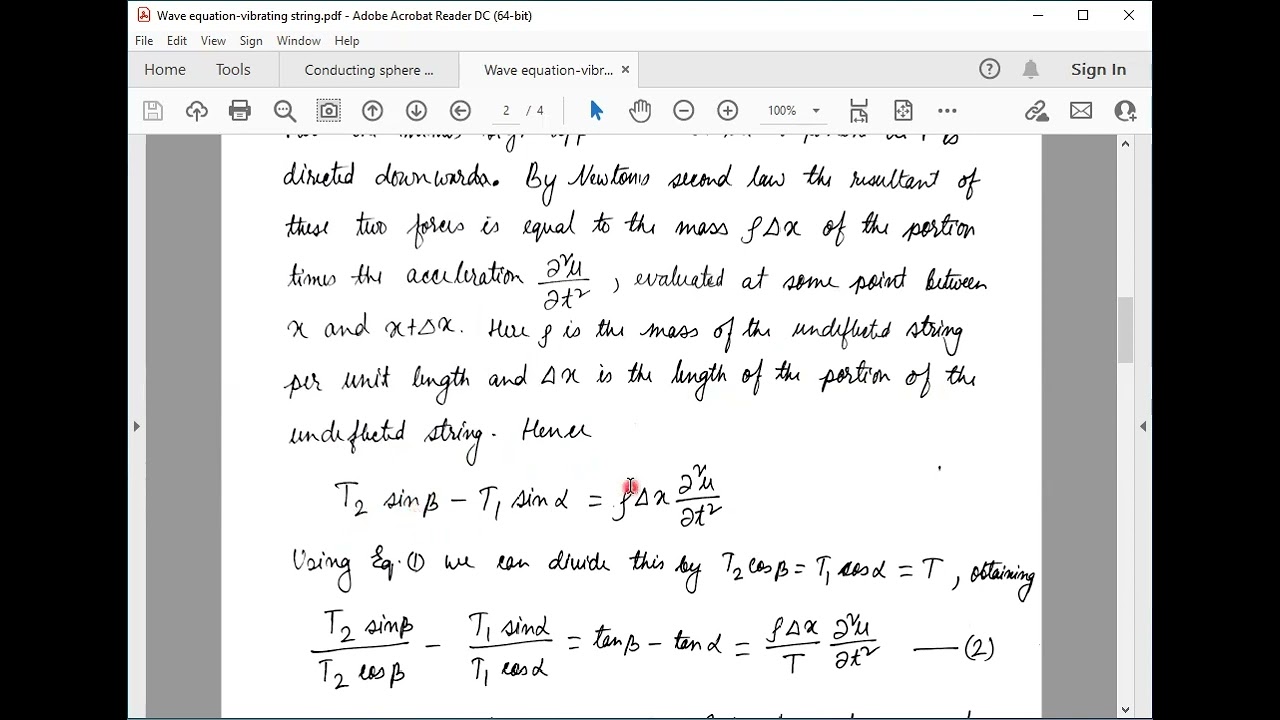 Wave equation-vibrating string.pdf - Adobe Acrobat Reader DC (64-bit)
File Edit View Sign Window Help
Home Tools Conducting sphere ... Wave equation-vibr... × Sign In
2 / 4 100%
directed downwards. By Newtons second law the resultant of
these two forces is equal to the mass ρΔx of the portion
times the acceleration ∂²u/∂t², evaluated at some point between
x and x+Δx. Here ρ is the mass of the undeflected string
per unit length and Δx is the length of the portion of the
undeflected string. Hence
T₂ sinβ − T₁ sinα = ρΔx ∂²u/∂t²
Using Eq.(1) we can divide this by T₂ cosβ = T₁ cosα = T, obtaining
T₂ sinβ/T₂ cosβ − T₁ sinα/T₁ cosα = tanβ − tanα = ρΔx/T ∂²u/∂t² —— (2)